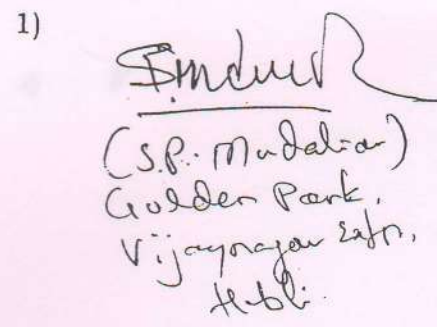 1)
(S.P. Mudaliar)
Golden Park,
Vijaynagar Extn,
Hubli.